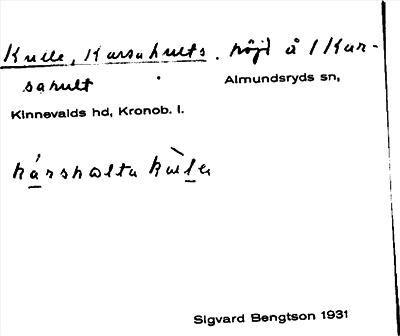 Kulle, Karsahults. höjd å 1 Kar-
sahult Almundsryds sn,
Kinnevalds hd, Kronob. l.
Sigvard Bengtson 1931